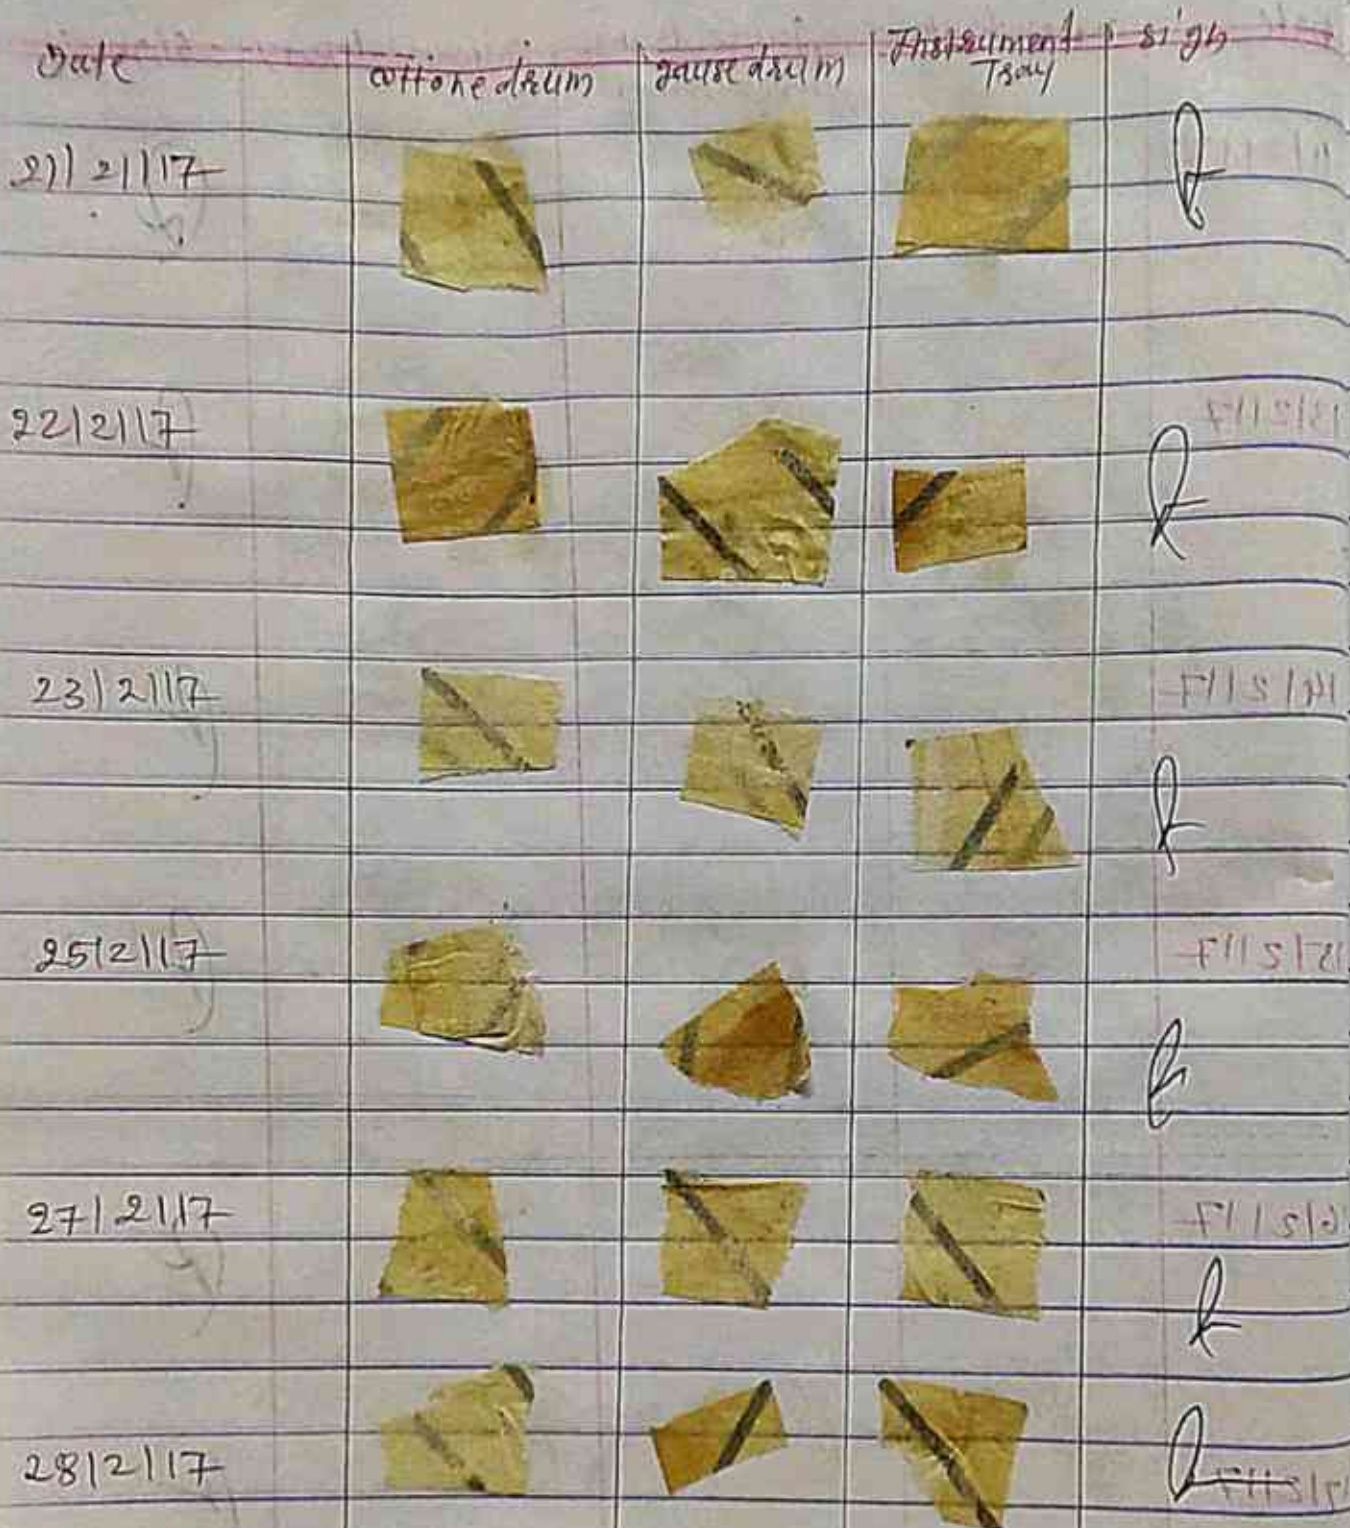 Date cottone drum gause drum Instrument Tray sign
21/2/17
22/2/17
23/2/17
25/2/17
27/2/17
28/2/17